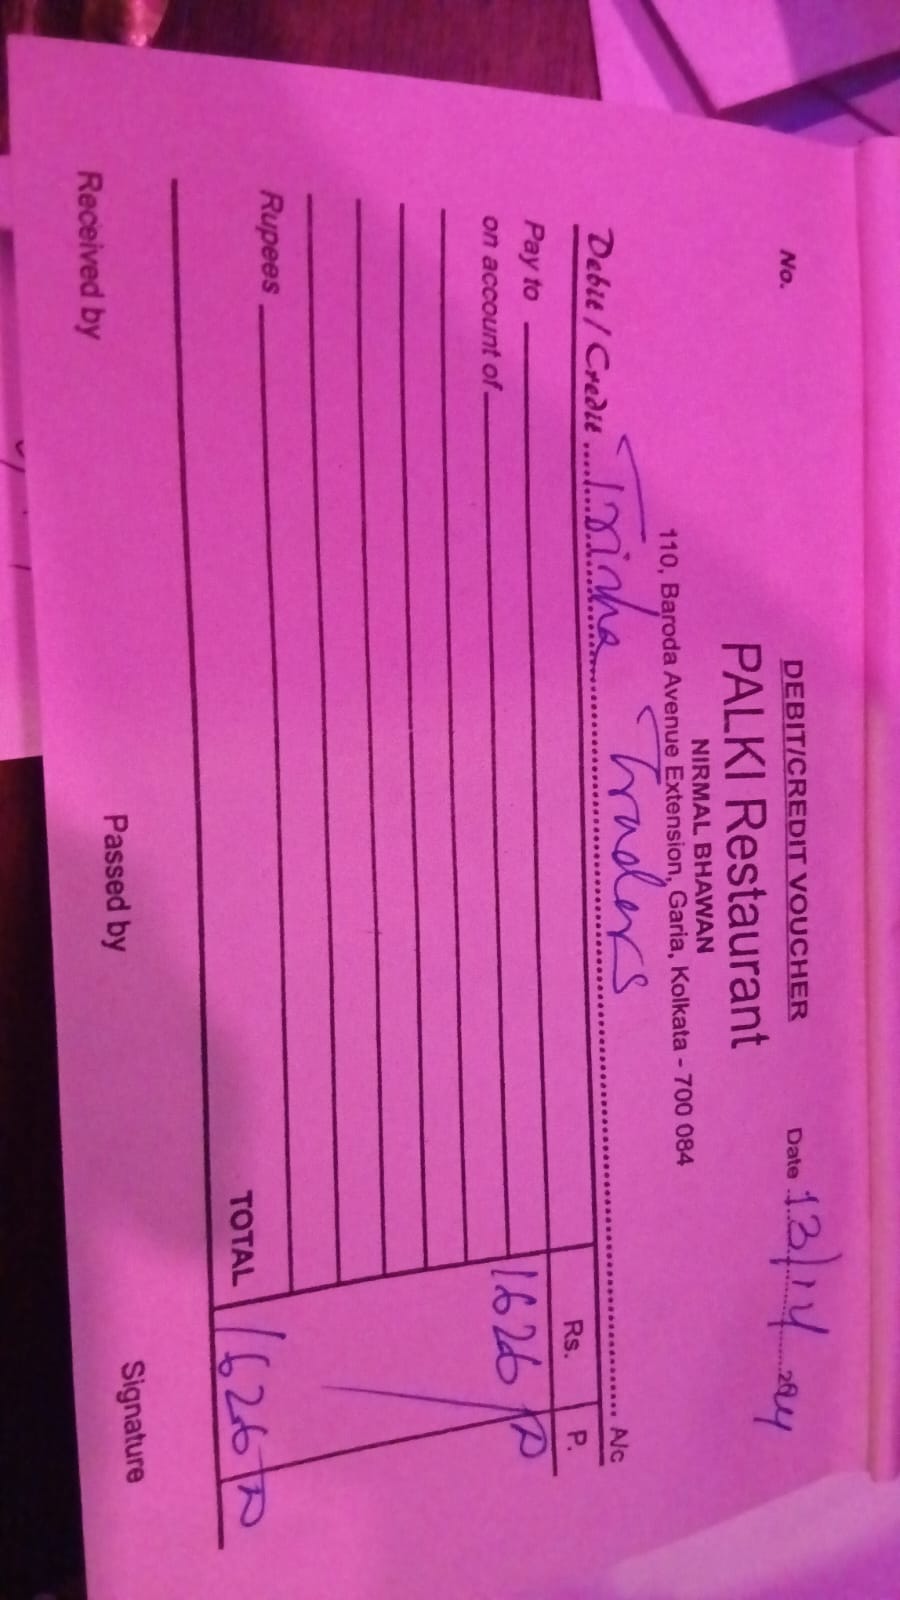 DEBIT/CREDIT VOUCHER
No.
PALKI Restaurant
NIRMAL BHAWAN
110, Baroda Avenue Extension, Garia, Kolkata - 700 084
Debit / Credit Traders A/c
Rs. P.
Pay to 1626
on account of
Rupees
TOTAL 1626
Received by Passed by Signature
Date